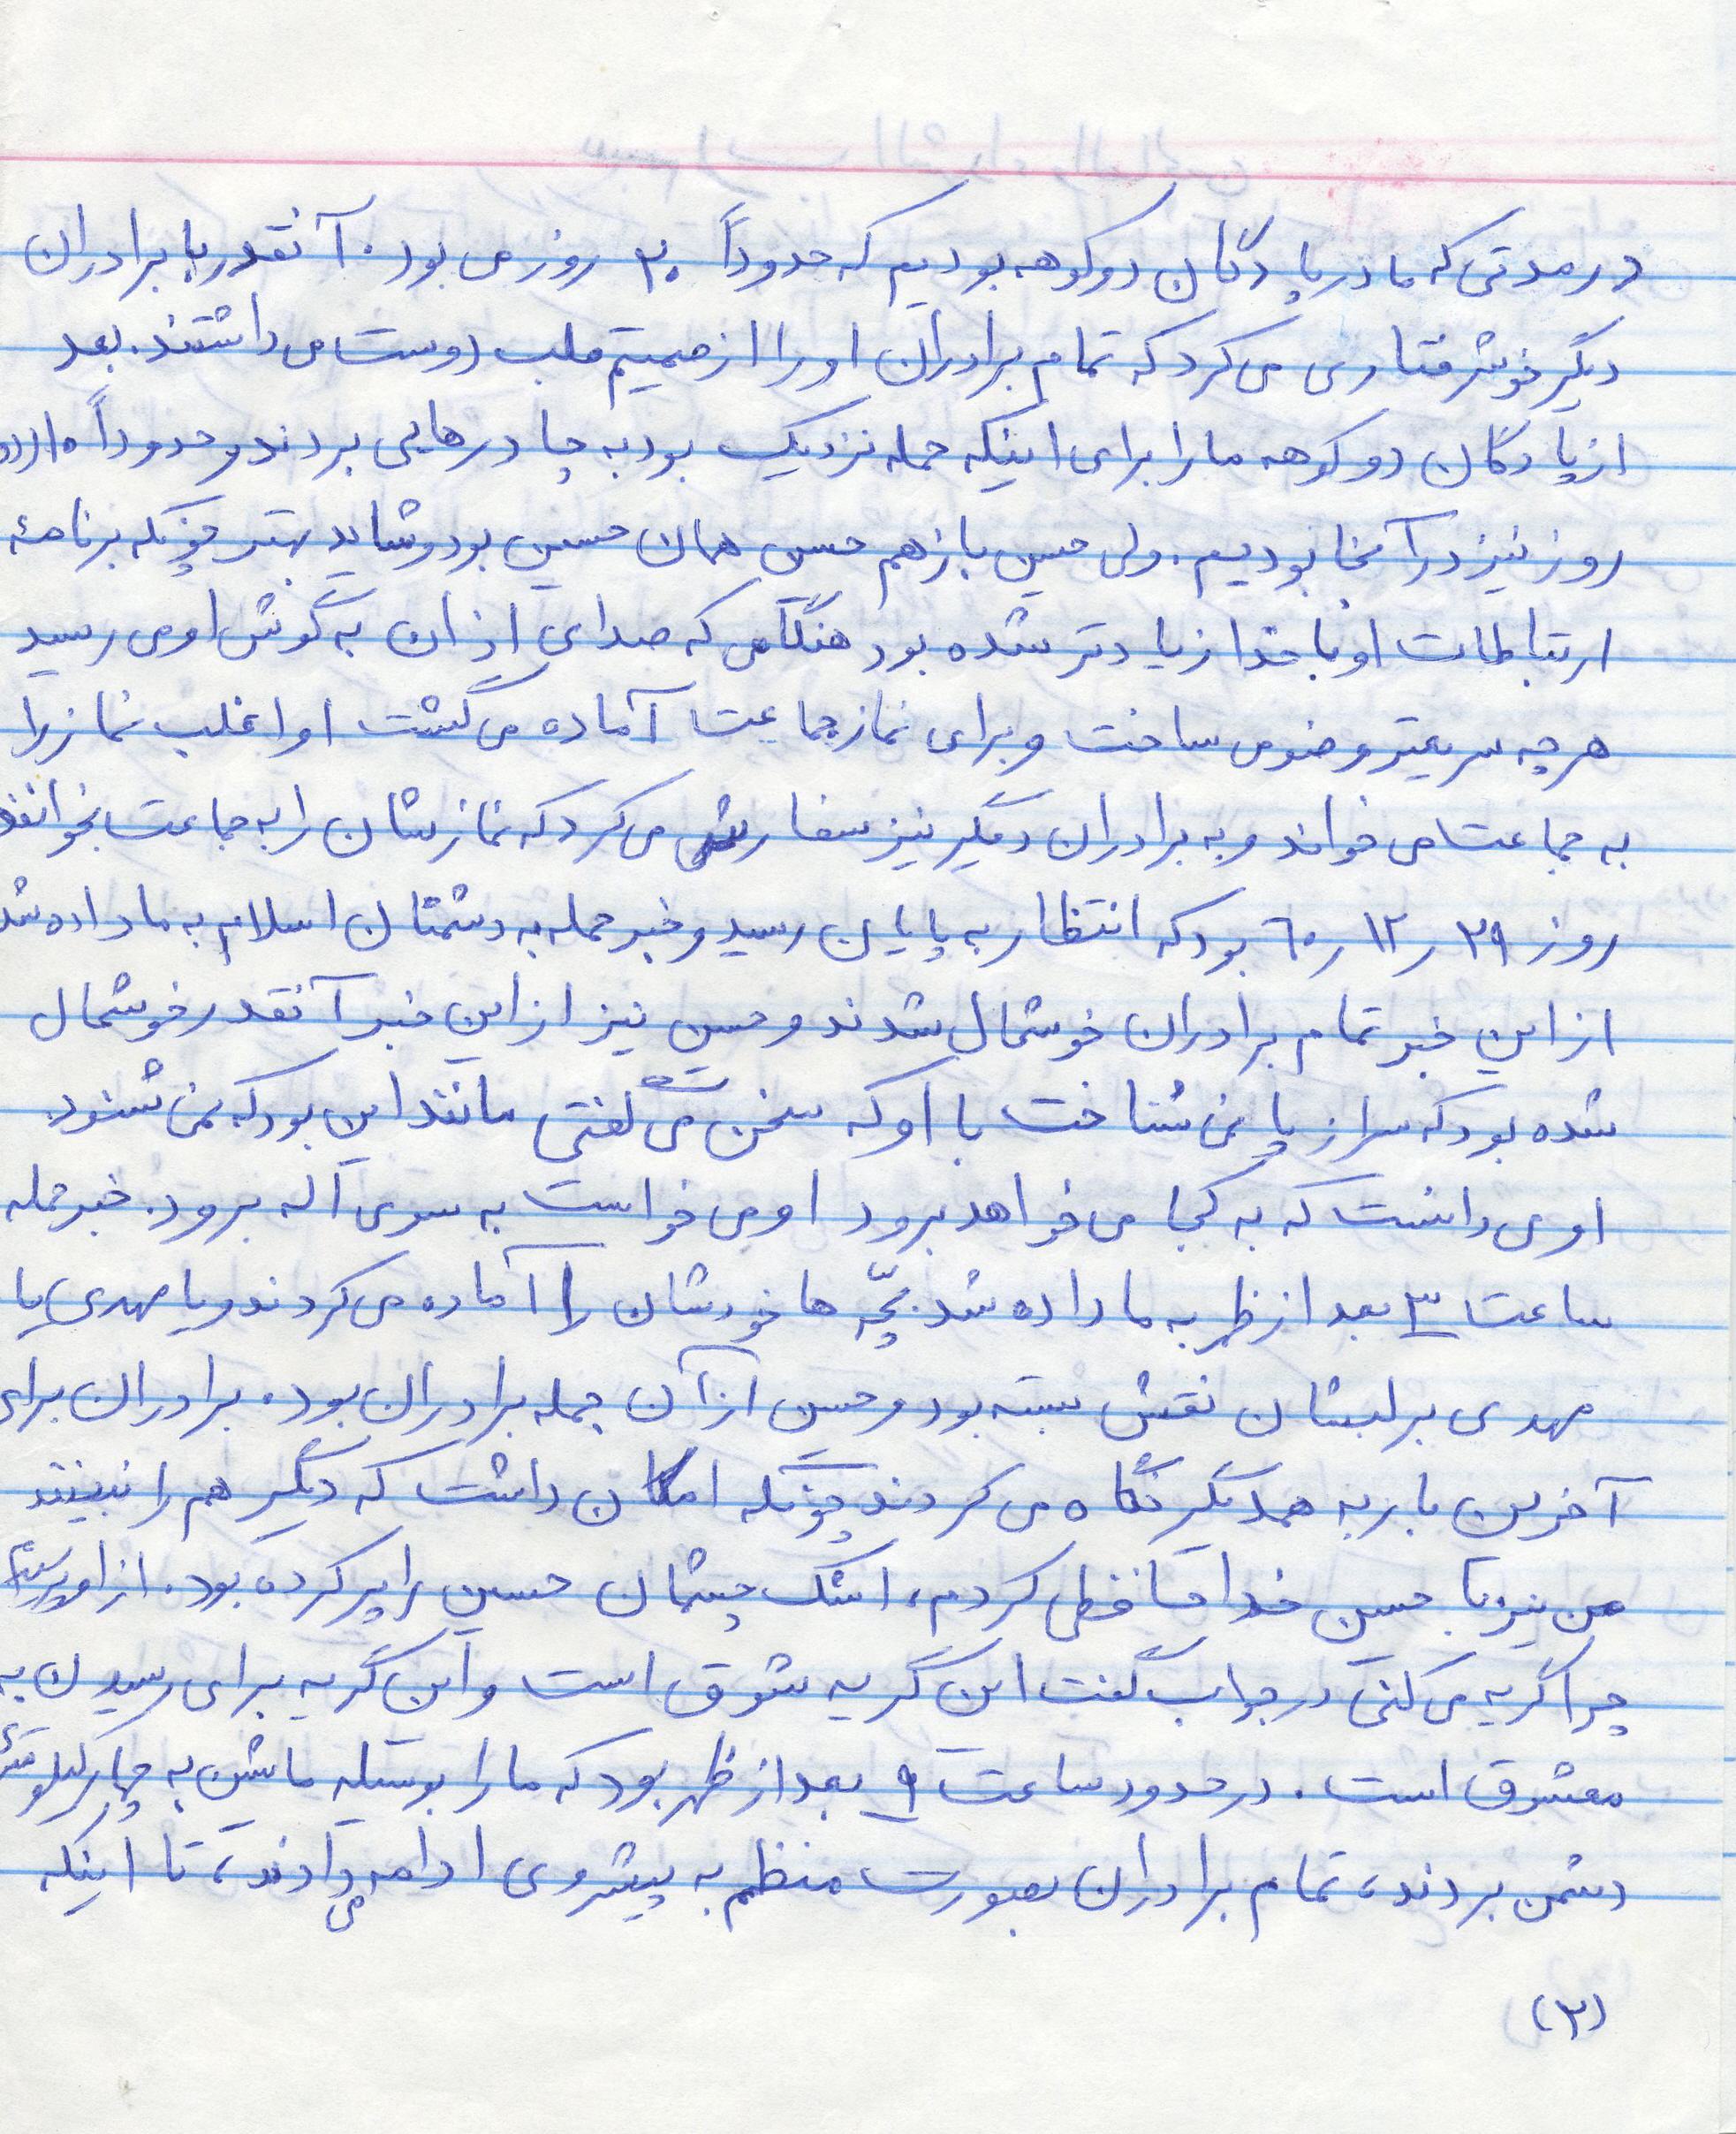 در مدتی که ما در پادگان دوکوهه بودیم که حدوداً ۲۰ روز می بود. آنقدر با برادران
دیگر خوشرفتاری می کرد که تمام برادران او را از صمیم قلب دوست می داشتند. بعد
از پادگان دوکوهه ما را برای اینکه حمله نزدیک بود به چادرهایی بردند و حدوداً
روز نیز در آنجا بودیم. ولی حسین باز هم حسین همان حسین بود و شاید بهتر چونکه برنامهٔ
ارتباطات او با خدا زیادتر شده بود هنگامی که صدای اذان به گوش او می رسید
هر چه سریعتر وضو می ساخت و برای نماز جماعت آماده می گشت او اغلب نماز را
به جماعت می خواند و به برادران دیگر نیز سفارش می کرد که نمازشان را به جماعت بخوانند
روز ۲۹ ر ۱۲ ر ۶۰ بود که انتظار به پایان رسید و خبر حمله به دشمنان اسلام به ما داده شد
از این خبر تمام برادران خوشحال شدند و حسین نیز از این خبر آنقدر خوشحال
شده بود که سر از پا نمی شناخت با او که سخن می گفتی مانند این بود که نمی شنود.
او می دانست که به کجا می خواهد برود او می خواست به سوی الله برود. خبر حمله
ساعت ۳ بعد از ظهر به ما داده شد بچّه ها خودشان را آماده می کردند و یا مهدی یا
مهدی بر لبشان نقش بسته بود و حسین از آن جمله برادران بود. برادران برای
آخرین بار به همدیگر نگاه می کردند چونکه امکان داشت که دیگر هم را نبینند
من نیز با حسین خداحافظی کردم، اشک چشمان حسین را پر کرده بود. از او پرسیدم
چرا گریه می کنی در جواب گفت این گریه شوق است و این گریه برای رسیدن به
معشوق است. در حدود ساعت ۹ بعد از ظهر بود که ما را بوسیله ماشین به چهار کیلومتری
دشمن بردند، تمام برادران بصورت منظم به پیشروی ادامه می دادند، تا اینکه
(۲)